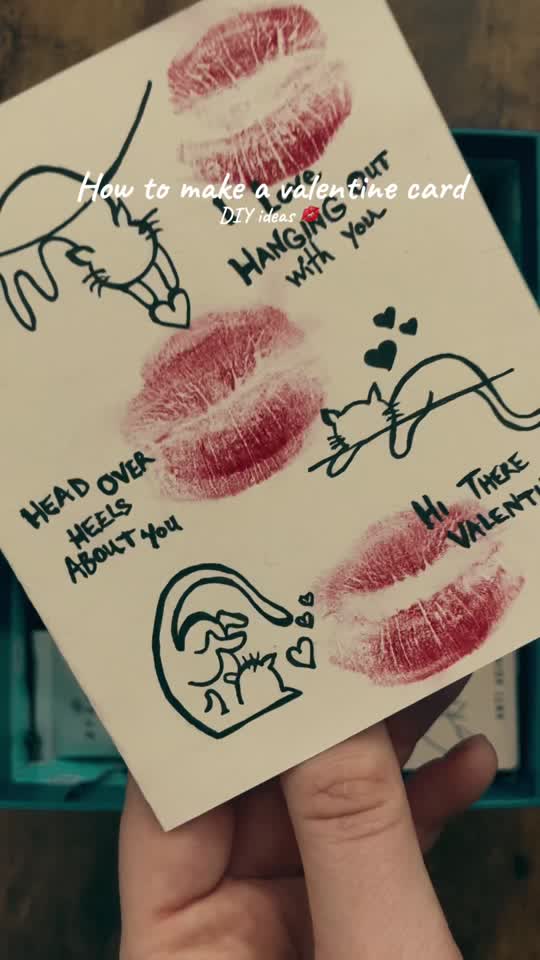 How to make a valentine card
DIY ideas 💋
HANGING OUT
with you
HEAD OVER
HEELS
ABOUT YOU
Hi THERE